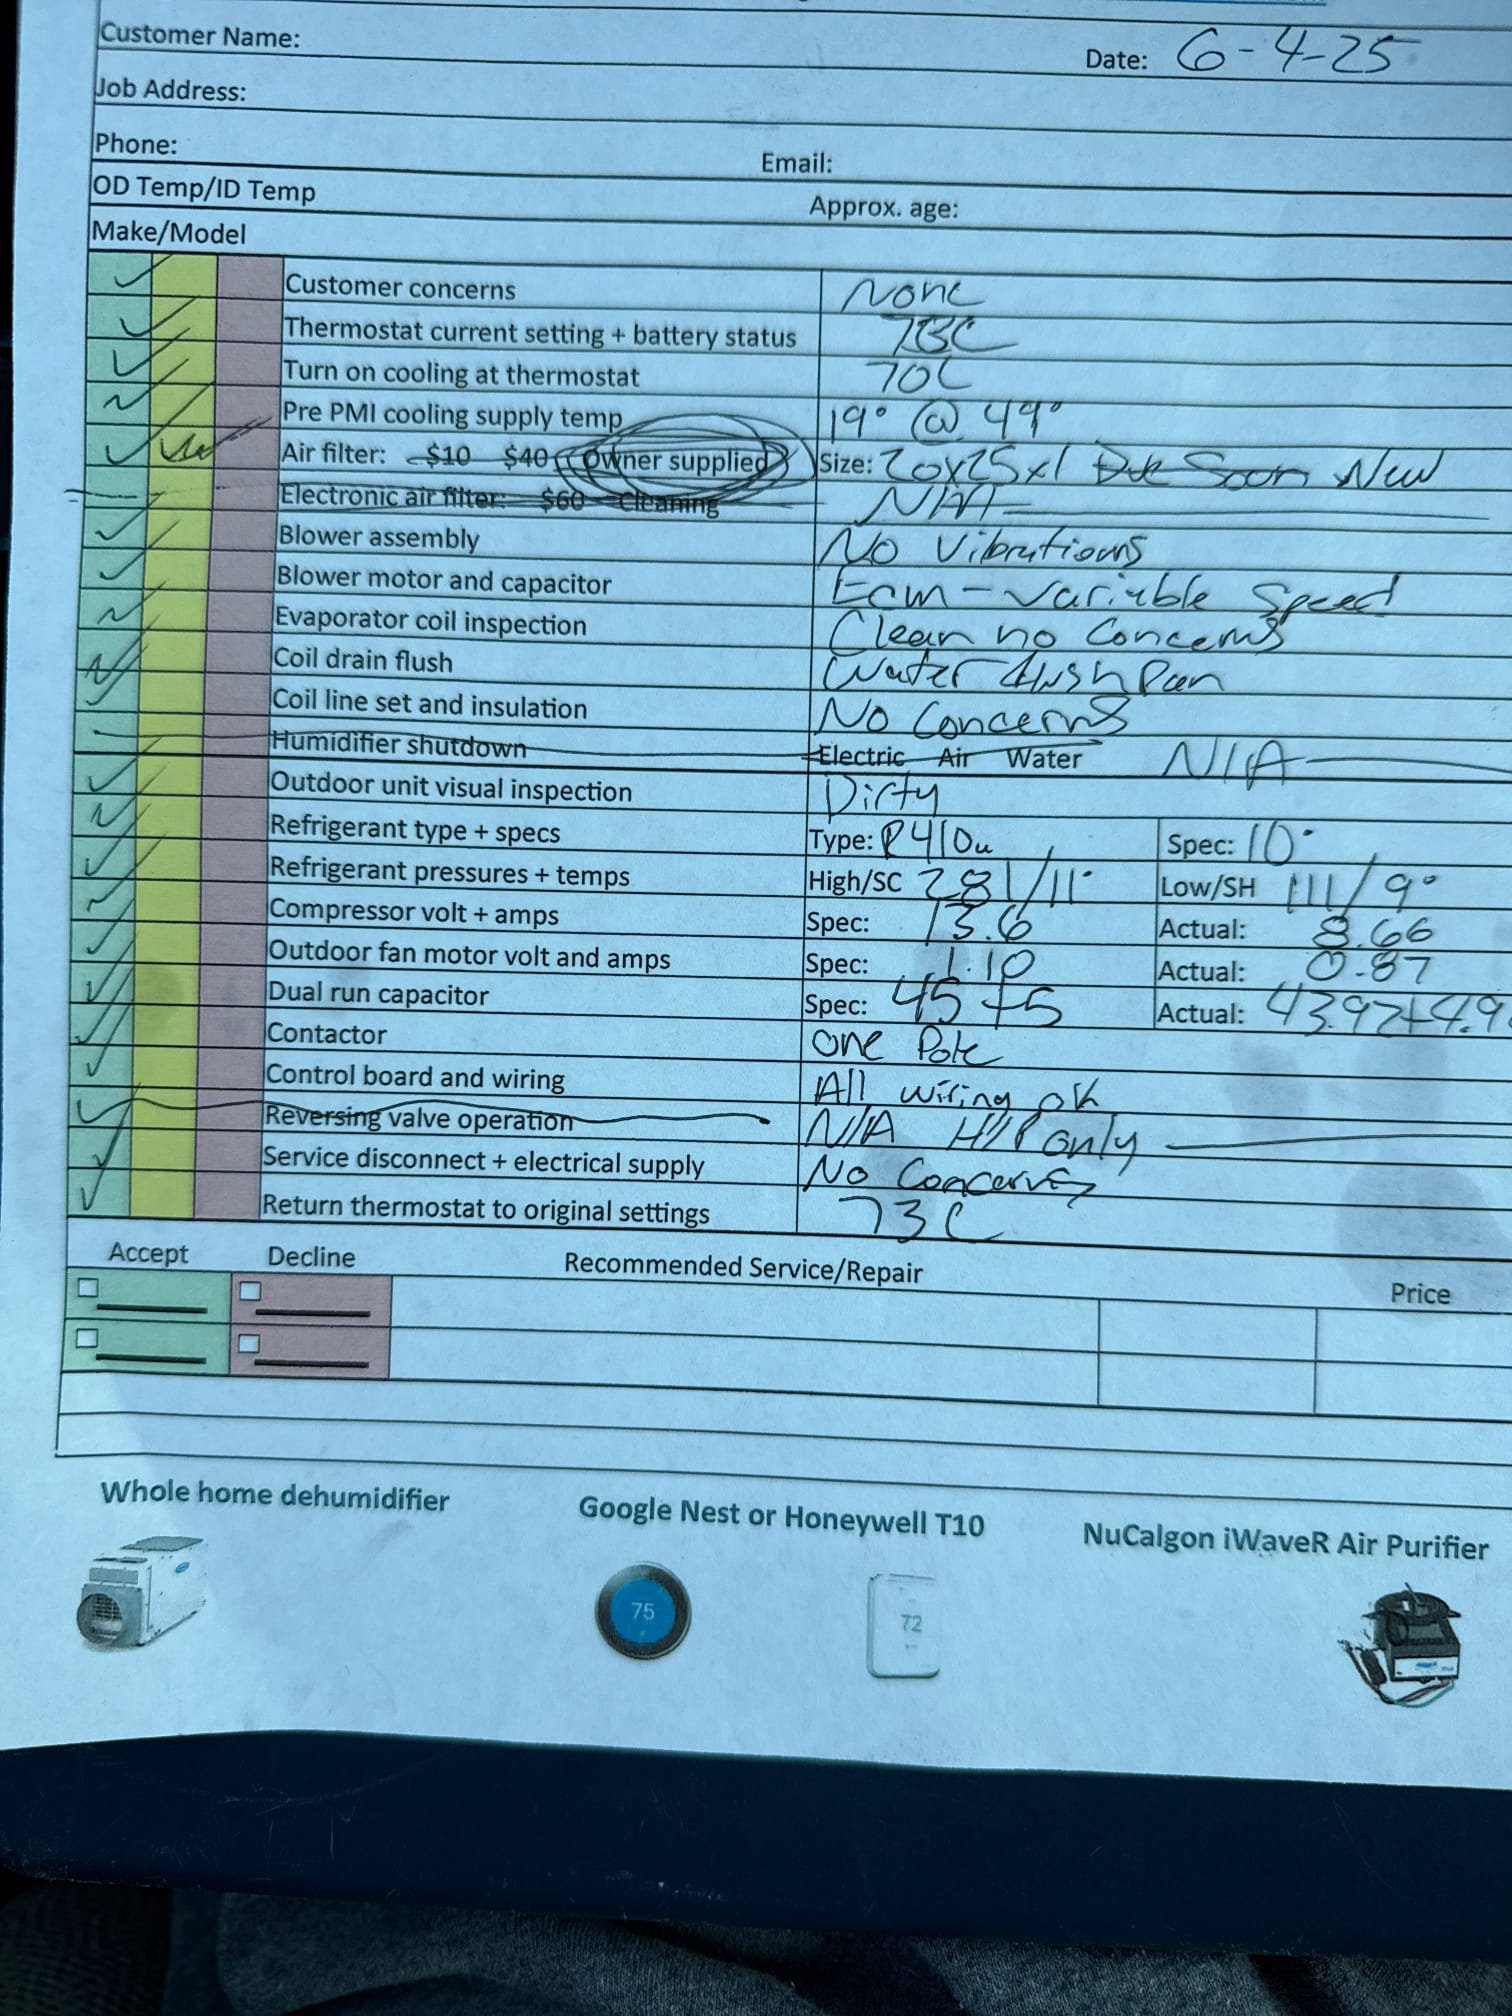 Customer Name:
Date: 6-4-25
Job Address:
Phone:
Email:
OD Temp/ID Temp
Approx. age:
Make/Model
Customer concerns None
Thermostat current setting + battery status 73C
Turn on cooling at thermostat 70C
Pre PMI cooling supply temp 19° @ 49°
Air filter: $10 $40 Owner supplied Size: 20x25x1 Due Soon New
Electronic air filter: $60 Cleaning N/A
Blower assembly No Vibrations
Blower motor and capacitor Ecm - variable Speed
Evaporator coil inspection Clean no Concerns
Coil drain flush Water flush Pan
Coil line set and insulation No Concerns
Humidifier shutdown Electric Air Water N/A
Outdoor unit visual inspection Dirty
Refrigerant type + specs Type: R410a Spec: 10°
Refrigerant pressures + temps High/SC 281/11° Low/SH 111/9°
Compressor volt + amps Spec: 13.6 Actual: 8.66
Outdoor fan motor volt and amps Spec: 1.10 Actual: 0.87
Dual run capacitor Spec: 45+5 Actual: 43.97+4.9
Contactor One Pole
Control board and wiring All wiring ok
Reversing valve operation N/A H/P only
Service disconnect + electrical supply No Concerns
Return thermostat to original settings 73C
Accept Decline Recommended Service/Repair Price
Whole home dehumidifier
Google Nest or Honeywell T10
NuCalgon iWaveR Air Purifier
75
72